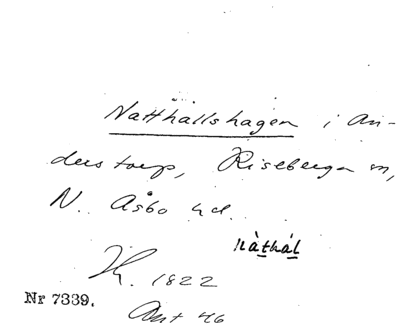 Natthallshagen i An-
derstorp, Riseberga sn,
N. Åsbo hd.
nàthál
H. 1822
Nr 7339.
Ant 46